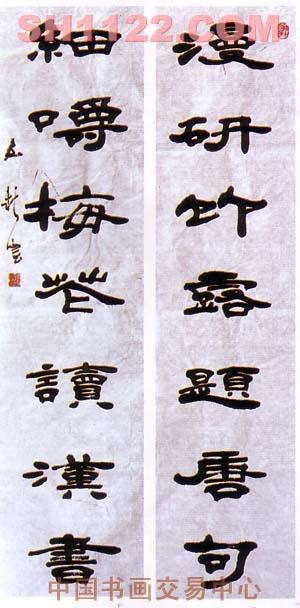 SH1122.COM
漫研竹露題唐句
細嚼梅花讀漢書
中国书画交易中心